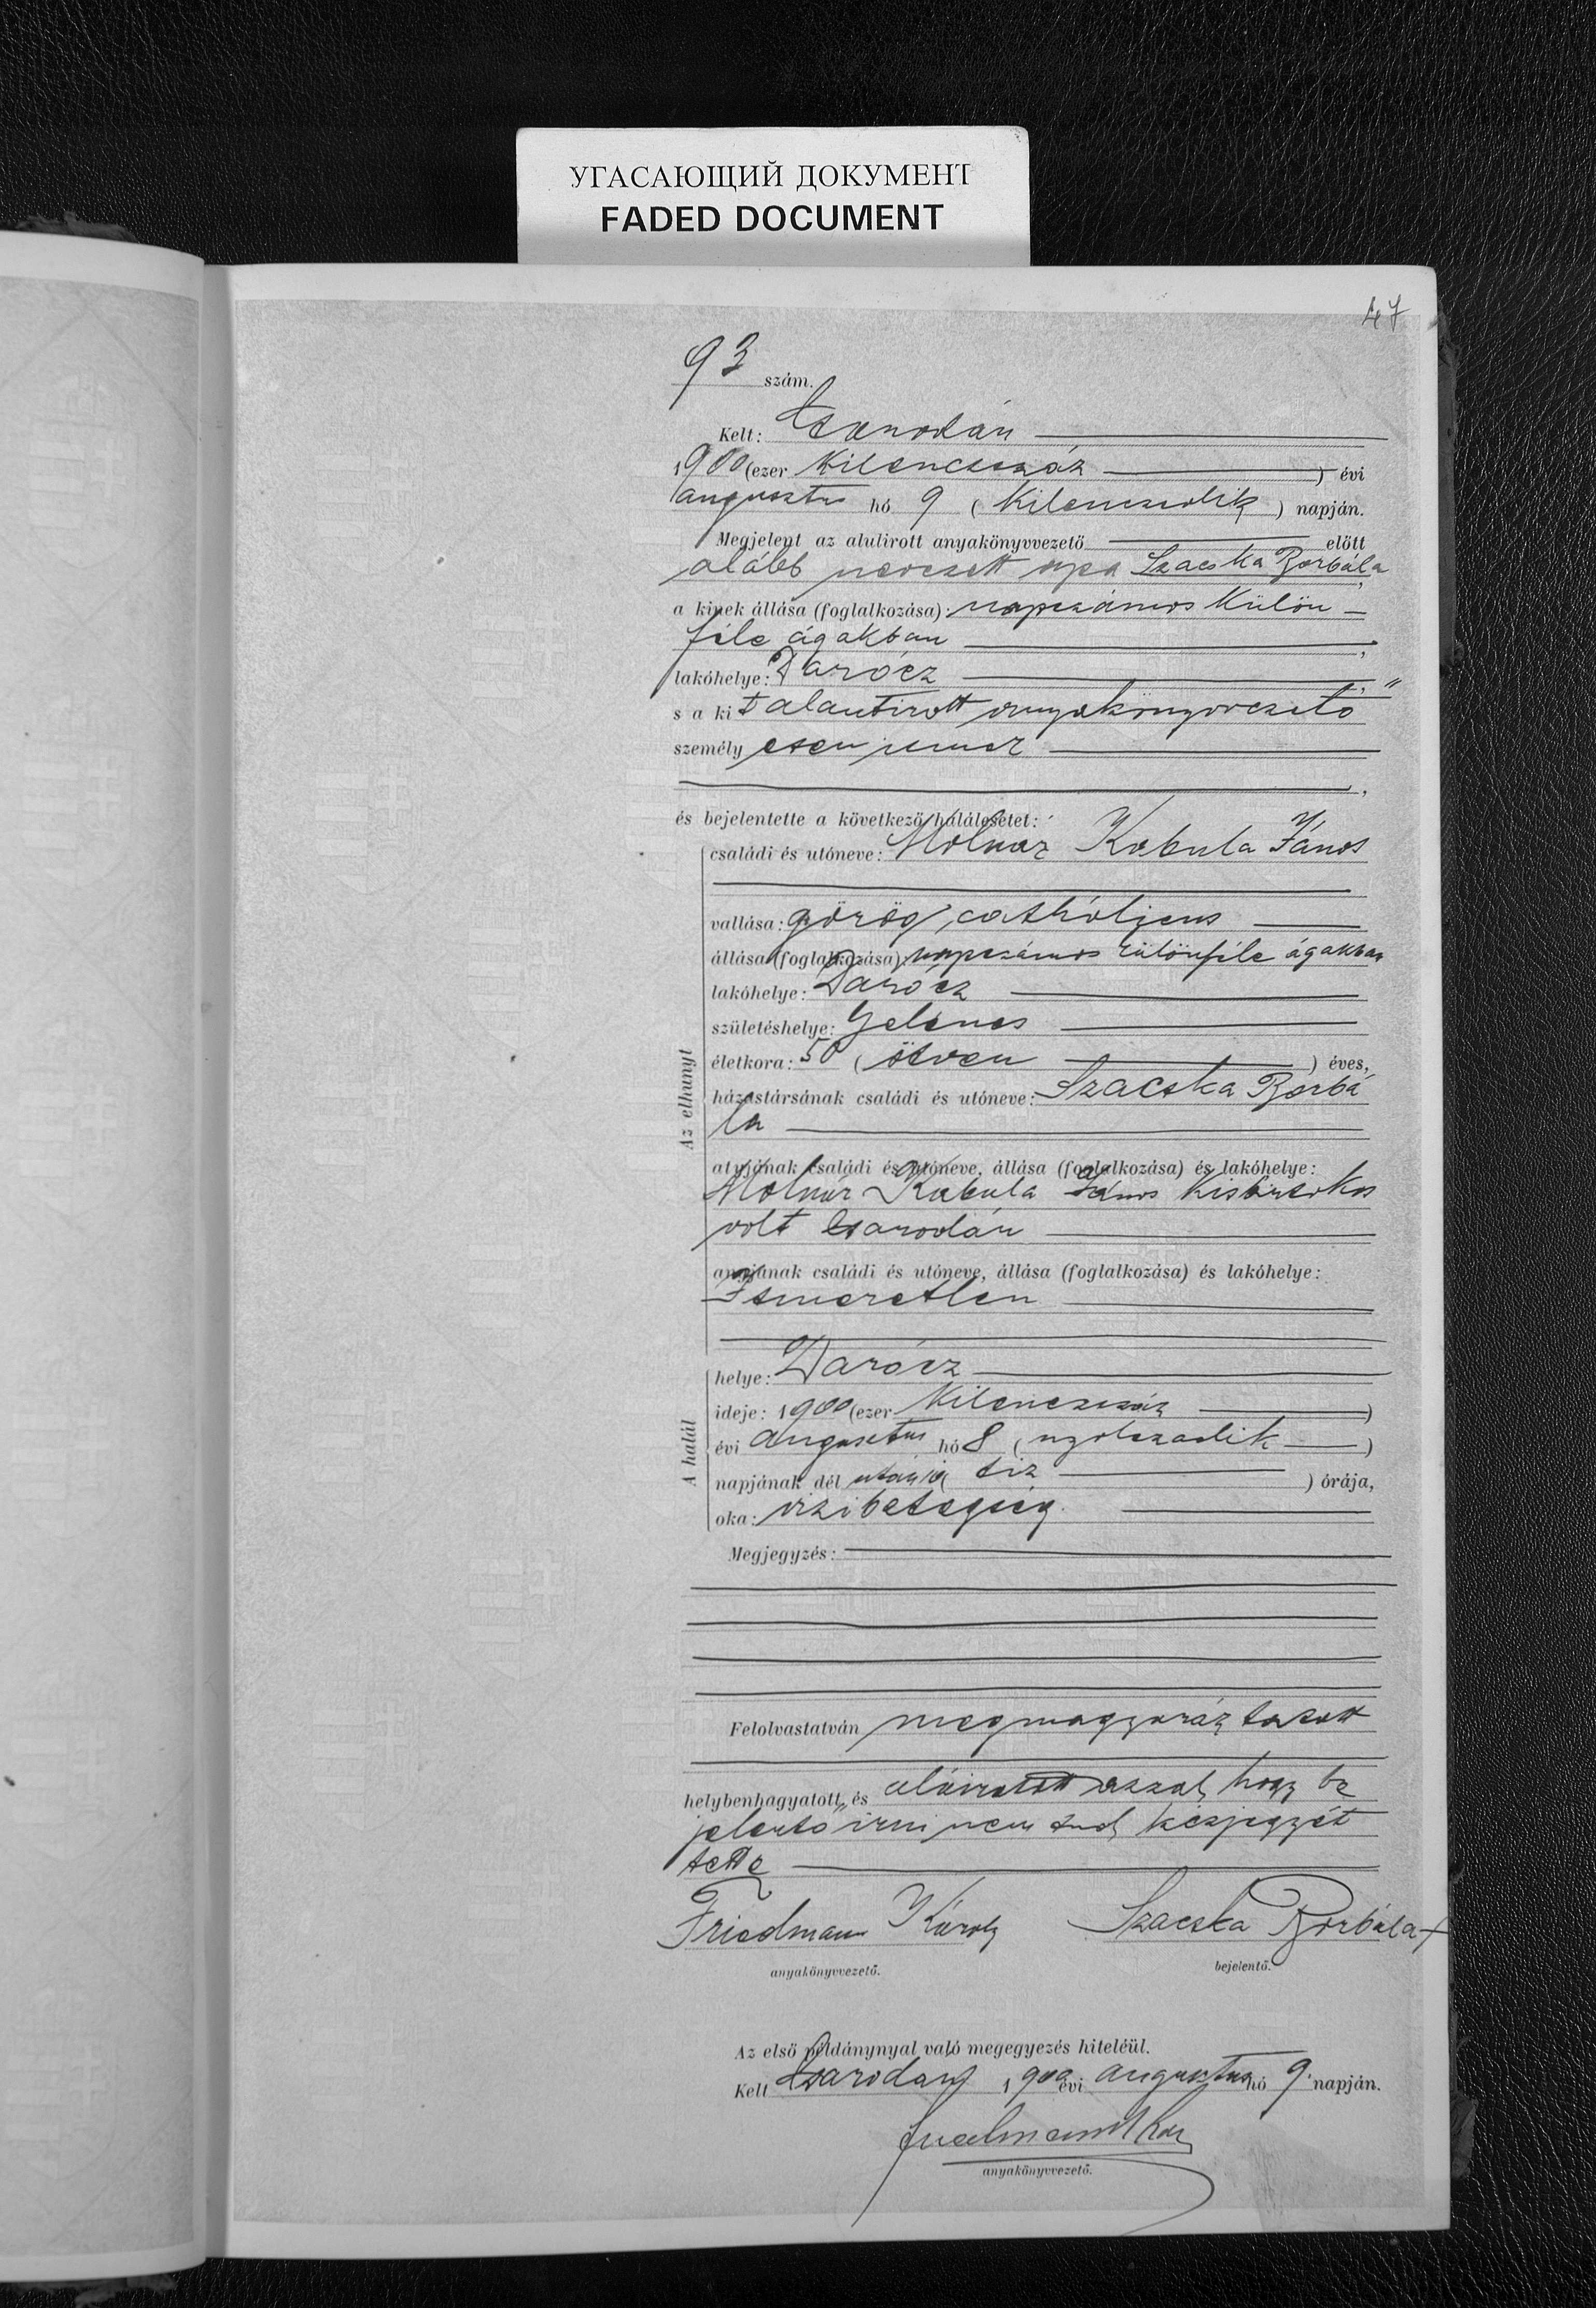 УГАСАЮЩИЙ ДОКУМЕНТ
FADED DOCUMENT
47
93 szám.
Kelt: Csarodán
1900 (ezer kilenczszáz ) évi
augusztus hó 9 ( kilenczedik ) napján.
Megjelent az alulirott anyakönyvvezető előtt
alább nevezett Szacska Borbála
a kinek állása (foglalkozása): napszámos külön
féle ágakban ,
lakóhelye: Darócz ,
s a kit alantirott anyakönyvvezető
személyesen ismer
,
és bejelentette a következő halálesetet:
Az elhunyt
családi és utóneve: Molnár Kabula János
vallása: görög catholicus
állása (foglalkozása): napszámos különféle ágakban
lakóhelye: Darócz
születéshelye: Gelénes
életkora: 50 ( ötven ) éves,
házastársának családi és utóneve: Szacska Borbá
la
atyjának családi és utóneve, állása (foglalkozása) és lakóhelye:
Molnár Kabula János kisbirtokos
volt Csarodán
anyjának családi és utóneve, állása (foglalkozása) és lakóhelye:
Ismeretlen
A halál
helye: Darócz
ideje: 1900 (ezer kilenczszáz )
évi augusztus hó 8 ( nyolczadik )
napjának dél utáni ( tiz ) órája,
oka: vizibetegség
Megjegyzés:
Felolvastatván megmagyaráztatott
helybenhagyatott, és aláiratott azzal, hogy be
jelentő irni nem tud, kézjegyét
tette
Friedmann Károly Szacska Borbála +
anyakönyvvezető. bejelentő.
Az első példánynyal való megegyezés hiteléül.
Kelt Csarodán 1900 évi augusztus hó 9 napján.
anyakönyvvezető.